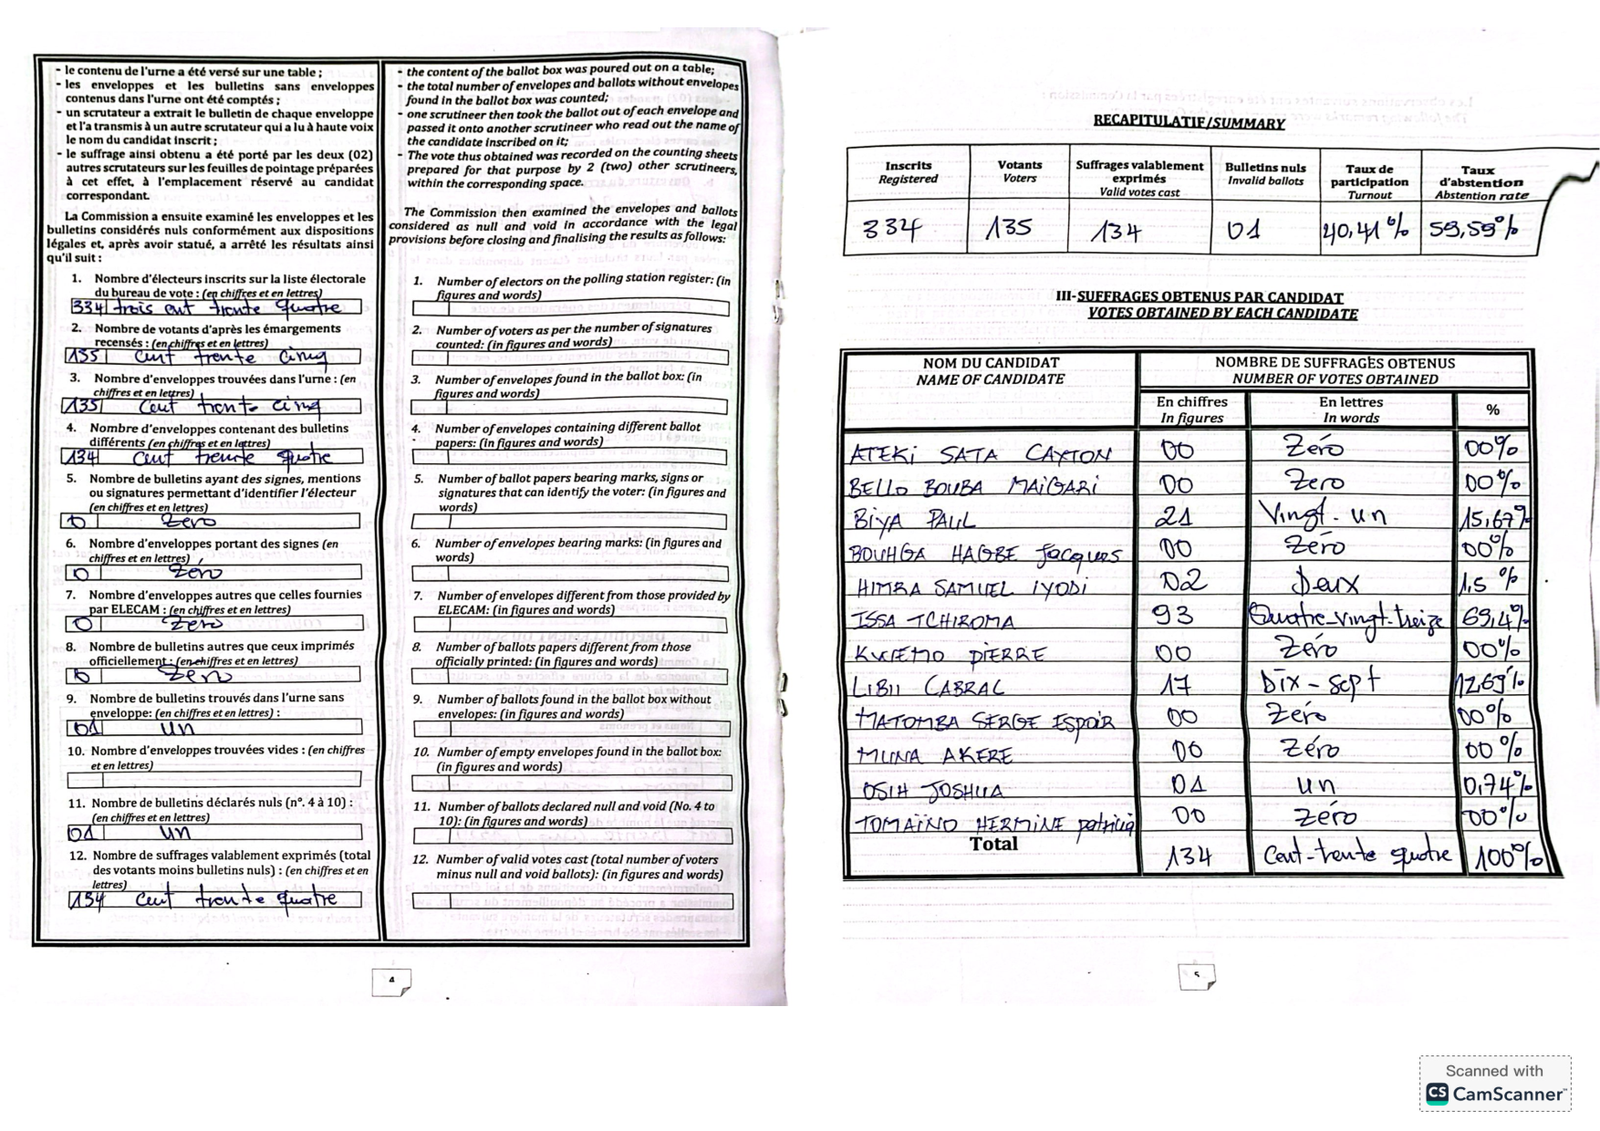 - le contenu de l'urne a été versé sur une table ;
- les enveloppes et les bulletins sans enveloppes
contenus dans l'urne ont été comptés ;
- un scrutateur a extrait le bulletin de chaque enveloppe
et l'a transmis à un autre scrutateur qui a lu à haute voix
le nom du candidat inscrit ;
- le suffrage ainsi obtenu a été porté par les deux (02)
autres scrutateurs sur les feuilles de pointage préparées
à cet effet, à l'emplacement réservé au candidat
correspondant.
La Commission a ensuite examiné les enveloppes et les
bulletins considérés nuls conformément aux dispositions
légales et, après avoir statué, a arrêté les résultats ainsi
qu'il suit :
1. Nombre d'électeurs inscrits sur la liste électorale
du bureau de vote : (en chiffres et en lettres)
334 trois cent trente quatre
2. Nombre de votants d'après les émargements
recensés : (en chiffres et en lettres)
135 cent trente cinq
3. Nombre d'enveloppes trouvées dans l'urne : (en
chiffres et en lettres)
135 Cent trente cinq
4. Nombre d'enveloppes contenant des bulletins
différents (en chiffres et en lettres)
134 Cent trente quatre
5. Nombre de bulletins ayant des signes, mentions
ou signatures permettant d'identifier l'électeur
(en chiffres et en lettres)
0 Zero
6. Nombre d'enveloppes portant des signes (en
chiffres et en lettres)
0 Zéro
7. Nombre d'enveloppes autres que celles fournies
par ELECAM : (en chiffres et en lettres)
0 Zero
8. Nombre de bulletins autres que ceux imprimés
officiellement : (en chiffres et en lettres)
0 Zero
9. Nombre de bulletins trouvés dans l'urne sans
enveloppe: (en chiffres et en lettres) :
01 un
10. Nombre d'enveloppes trouvées vides : (en chiffres
et en lettres)
11. Nombre de bulletins déclarés nuls (n°. 4 à 10) :
(en chiffres et en lettres)
01 un
12. Nombre de suffrages valablement exprimés (total
des votants moins bulletins nuls) : (en chiffres et en
lettres)
134 cent trente quatre
- the content of the ballot box was poured out on a table;
- the total number of envelopes and ballots without envelopes
found in the ballot box was counted;
- one scrutineer then took the ballot out of each envelope and
passed it onto another scrutineer who read out the name of
the candidate inscribed on it;
- The vote thus obtained was recorded on the counting sheets
prepared for that purpose by 2 (two) other scrutineers,
within the corresponding space.
The Commission then examined the envelopes and ballots
considered as null and void in accordance with the legal
provisions before closing and finalising the results as follows:
1. Number of electors on the polling station register: (in
figures and words)
2. Number of voters as per the number of signatures
counted: (in figures and words)
3. Number of envelopes found in the ballot box: (in
figures and words)
4. Number of envelopes containing different ballot
papers: (in figures and words)
5. Number of ballot papers bearing marks, signs or
signatures that can identify the voter: (in figures and
words)
6. Number of envelopes bearing marks: (in figures and
words)
7. Number of envelopes different from those provided by
ELECAM: (in figures and words)
8. Number of ballots papers different from those
officially printed: (in figures and words)
9. Number of ballots found in the ballot box without
envelopes: (in figures and words)
10. Number of empty envelopes found in the ballot box:
(in figures and words)
11. Number of ballots declared null and void (No. 4 to
10): (in figures and words)
12. Number of valid votes cast (total number of voters
minus null and void ballots): (in figures and words)
4
RECAPITULATIF/SUMMARY
Inscrits Registered Votants Voters Suffrages valablement exprimés Valid votes cast Bulletins nuls Invalid ballots Taux de participation Turnout Taux d'abstention Abstention rate
334 135 134 01 40,41% 59,59%
III-SUFFRAGES OBTENUS PAR CANDIDAT
VOTES OBTAINED BY EACH CANDIDATE
NOM DU CANDIDAT NOMBRE DE SUFFRAGES OBTENUS
NAME OF CANDIDATE NUMBER OF VOTES OBTAINED
En chiffres En lettres %
In figures In words
ATEKI SATA CAXTON 00 Zéro 00%
BELLO BOUBA MAIGARI 00 Zero 00%
BIYA PAUL 21 Vingt-un 15,67%
BOUHGA HAGBE Jacques 00 Zéro 00%
HIMBA SAMUEL IYODI 02 Deux 1,5 %
ISSA TCHIROMA 93 Quatre-vingt-treize 69,4%
KWEMO PIERRE 00 Zéro 00%
LIBII CABRAL 17 Dix-sept 12,69%
MATOMBA SERGE ESPOIR 00 Zéro 00%
MUNA AKERE 00 Zéro 00%
OSIH JOSHUA 01 un 0,74%
TOMAÏNO HERMINE patricia 00 Zéro 00%
Total 134 Cent-trente quatre 100%
5
Scanned with
CS CamScanner